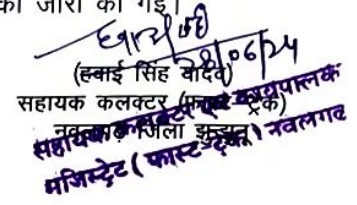 को जारी की गई।
28/06/24
(हवाई सिंह यादव)
सहायक कलक्टर (फास्ट ट्रैक)
नवलगढ़ जिला झुन्झुनू
सहायक कलक्टर एवं कार्यपालक
मजिस्ट्रेट (फास्ट-ट्रैक) नवलगढ